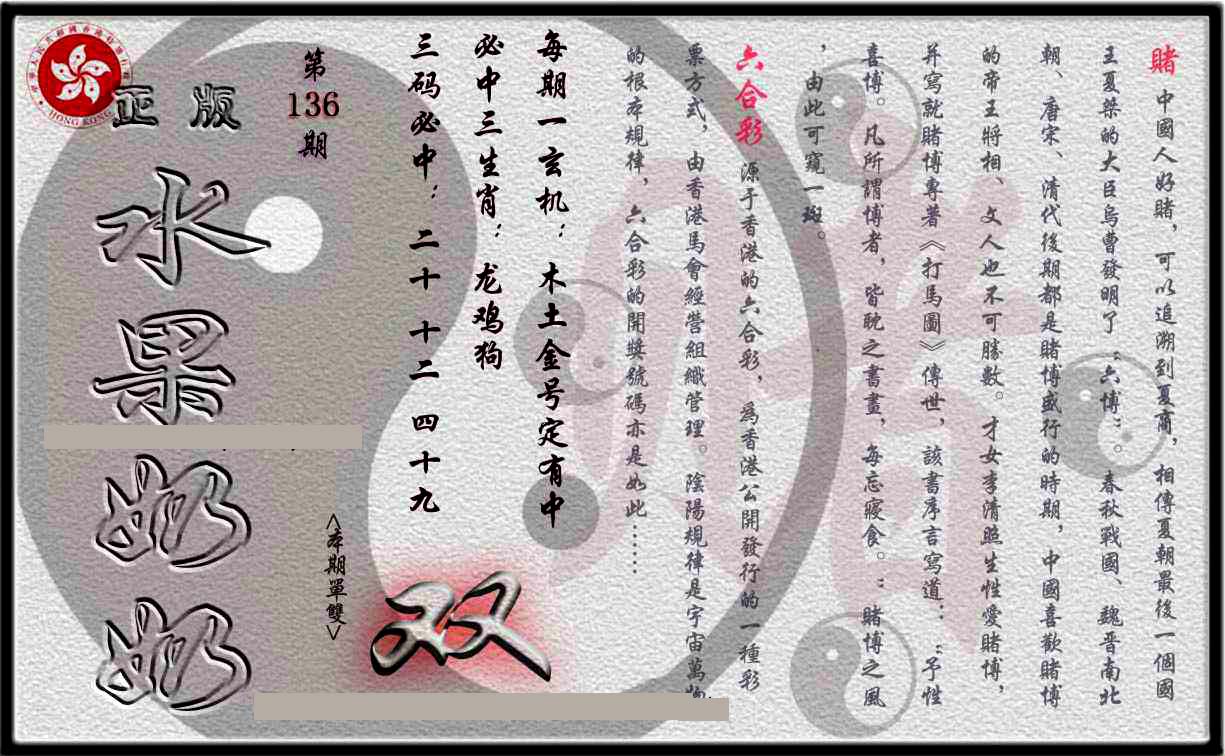 賭 中國人好賭，可以追溯到夏商，相傳夏朝最後一個國
王夏桀的大臣烏曹發明了“六博”。春秋戰國、魏晋南北
朝、唐宋、清代後期都是賭博盛行的時期，中國喜歡賭博
的帝王將相、文人也不可勝數。才女李清照生性愛賭博，
并寫就賭博專著《打馬圖》傳世，該書序言寫道：“予性
喜博。凡所謂博者，皆耽之晝畫，每忘寢食。“賭博之風
，由此可窺一斑。
六合彩 源于香港的六合彩，為香港公開發行的一種彩
票方式，由香港馬會經營組織管理。陰陽規律是宇宙萬物
的根本規律，六合彩的開獎號碼亦是如此……
每期一玄机：木土金号定有中
必中三生肖：龙鸡狗
三码必中：二十 十二 四十九
第
136
期
<本期單雙>
双
正版
水果奶奶
HONG KONG